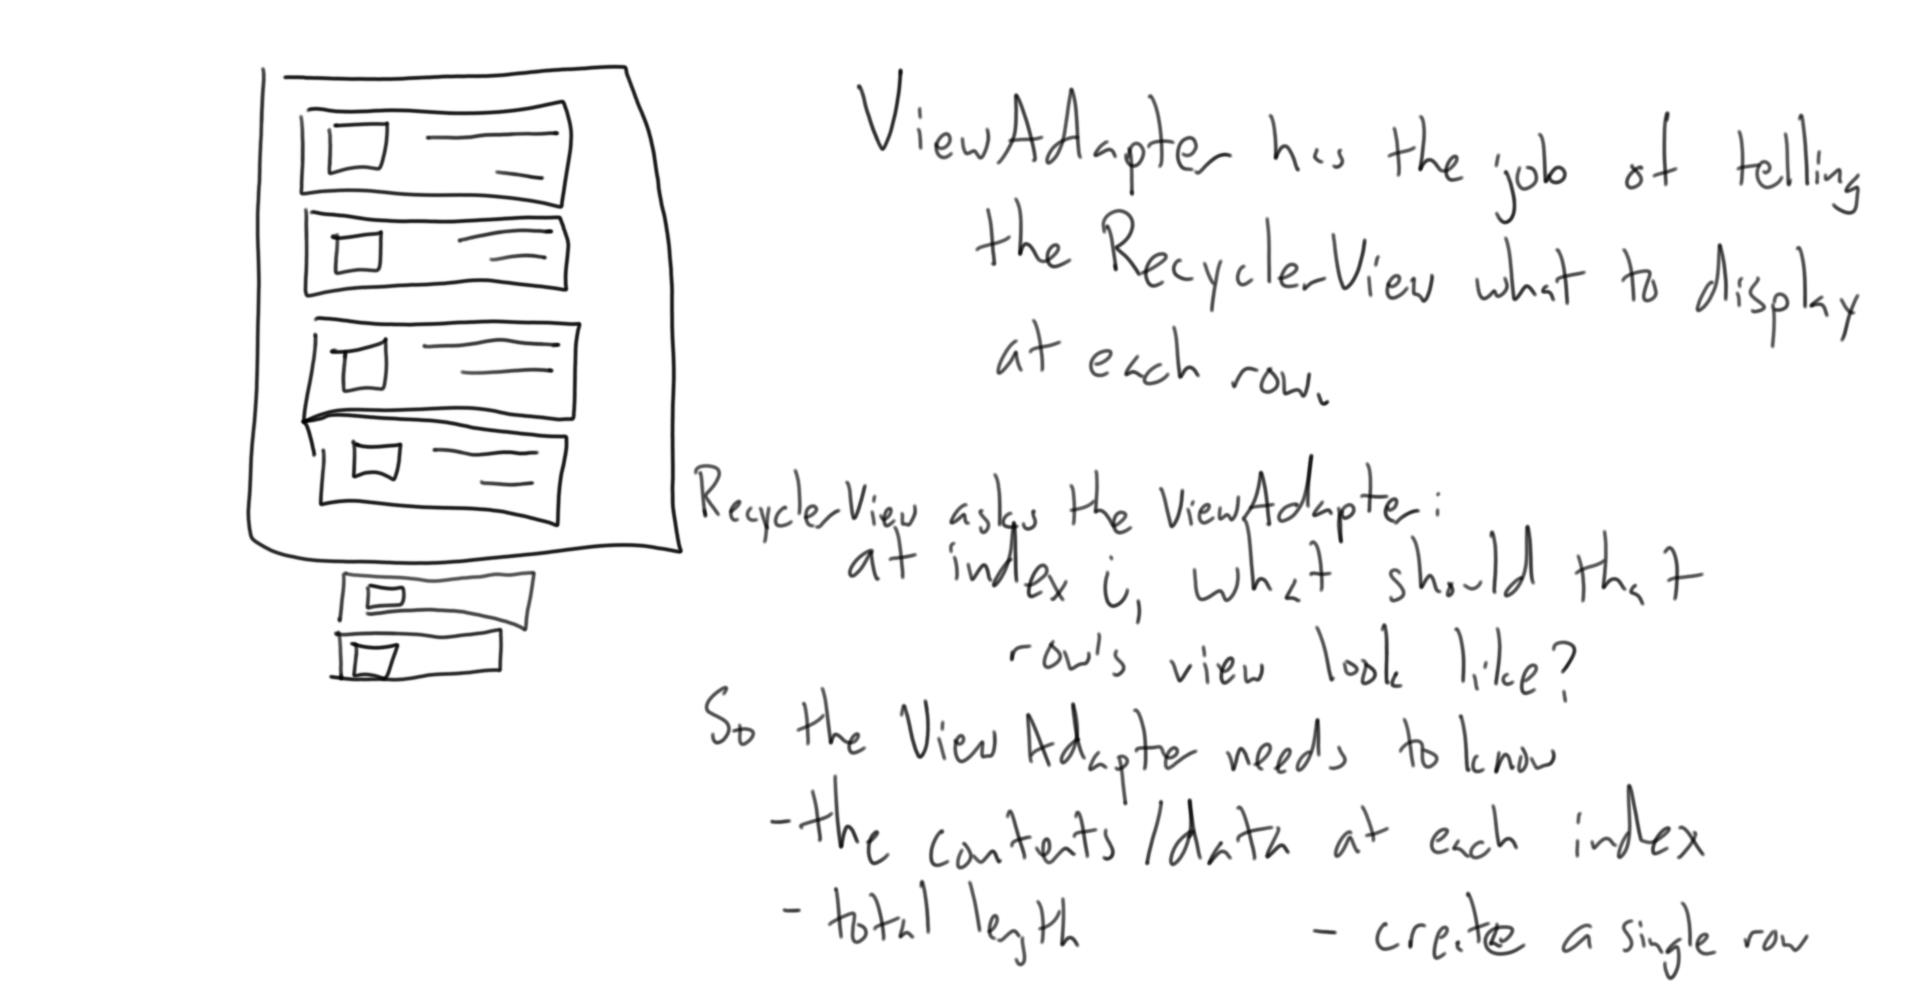 ViewAdapter has the job of telling
the RecyclerView what to display
at each row.
RecyclerView asks the ViewAdapter:
at index i, what should that
row's view look like?
So the View Adapter needs to know
- the contents / data at each index
- total length - create a single row